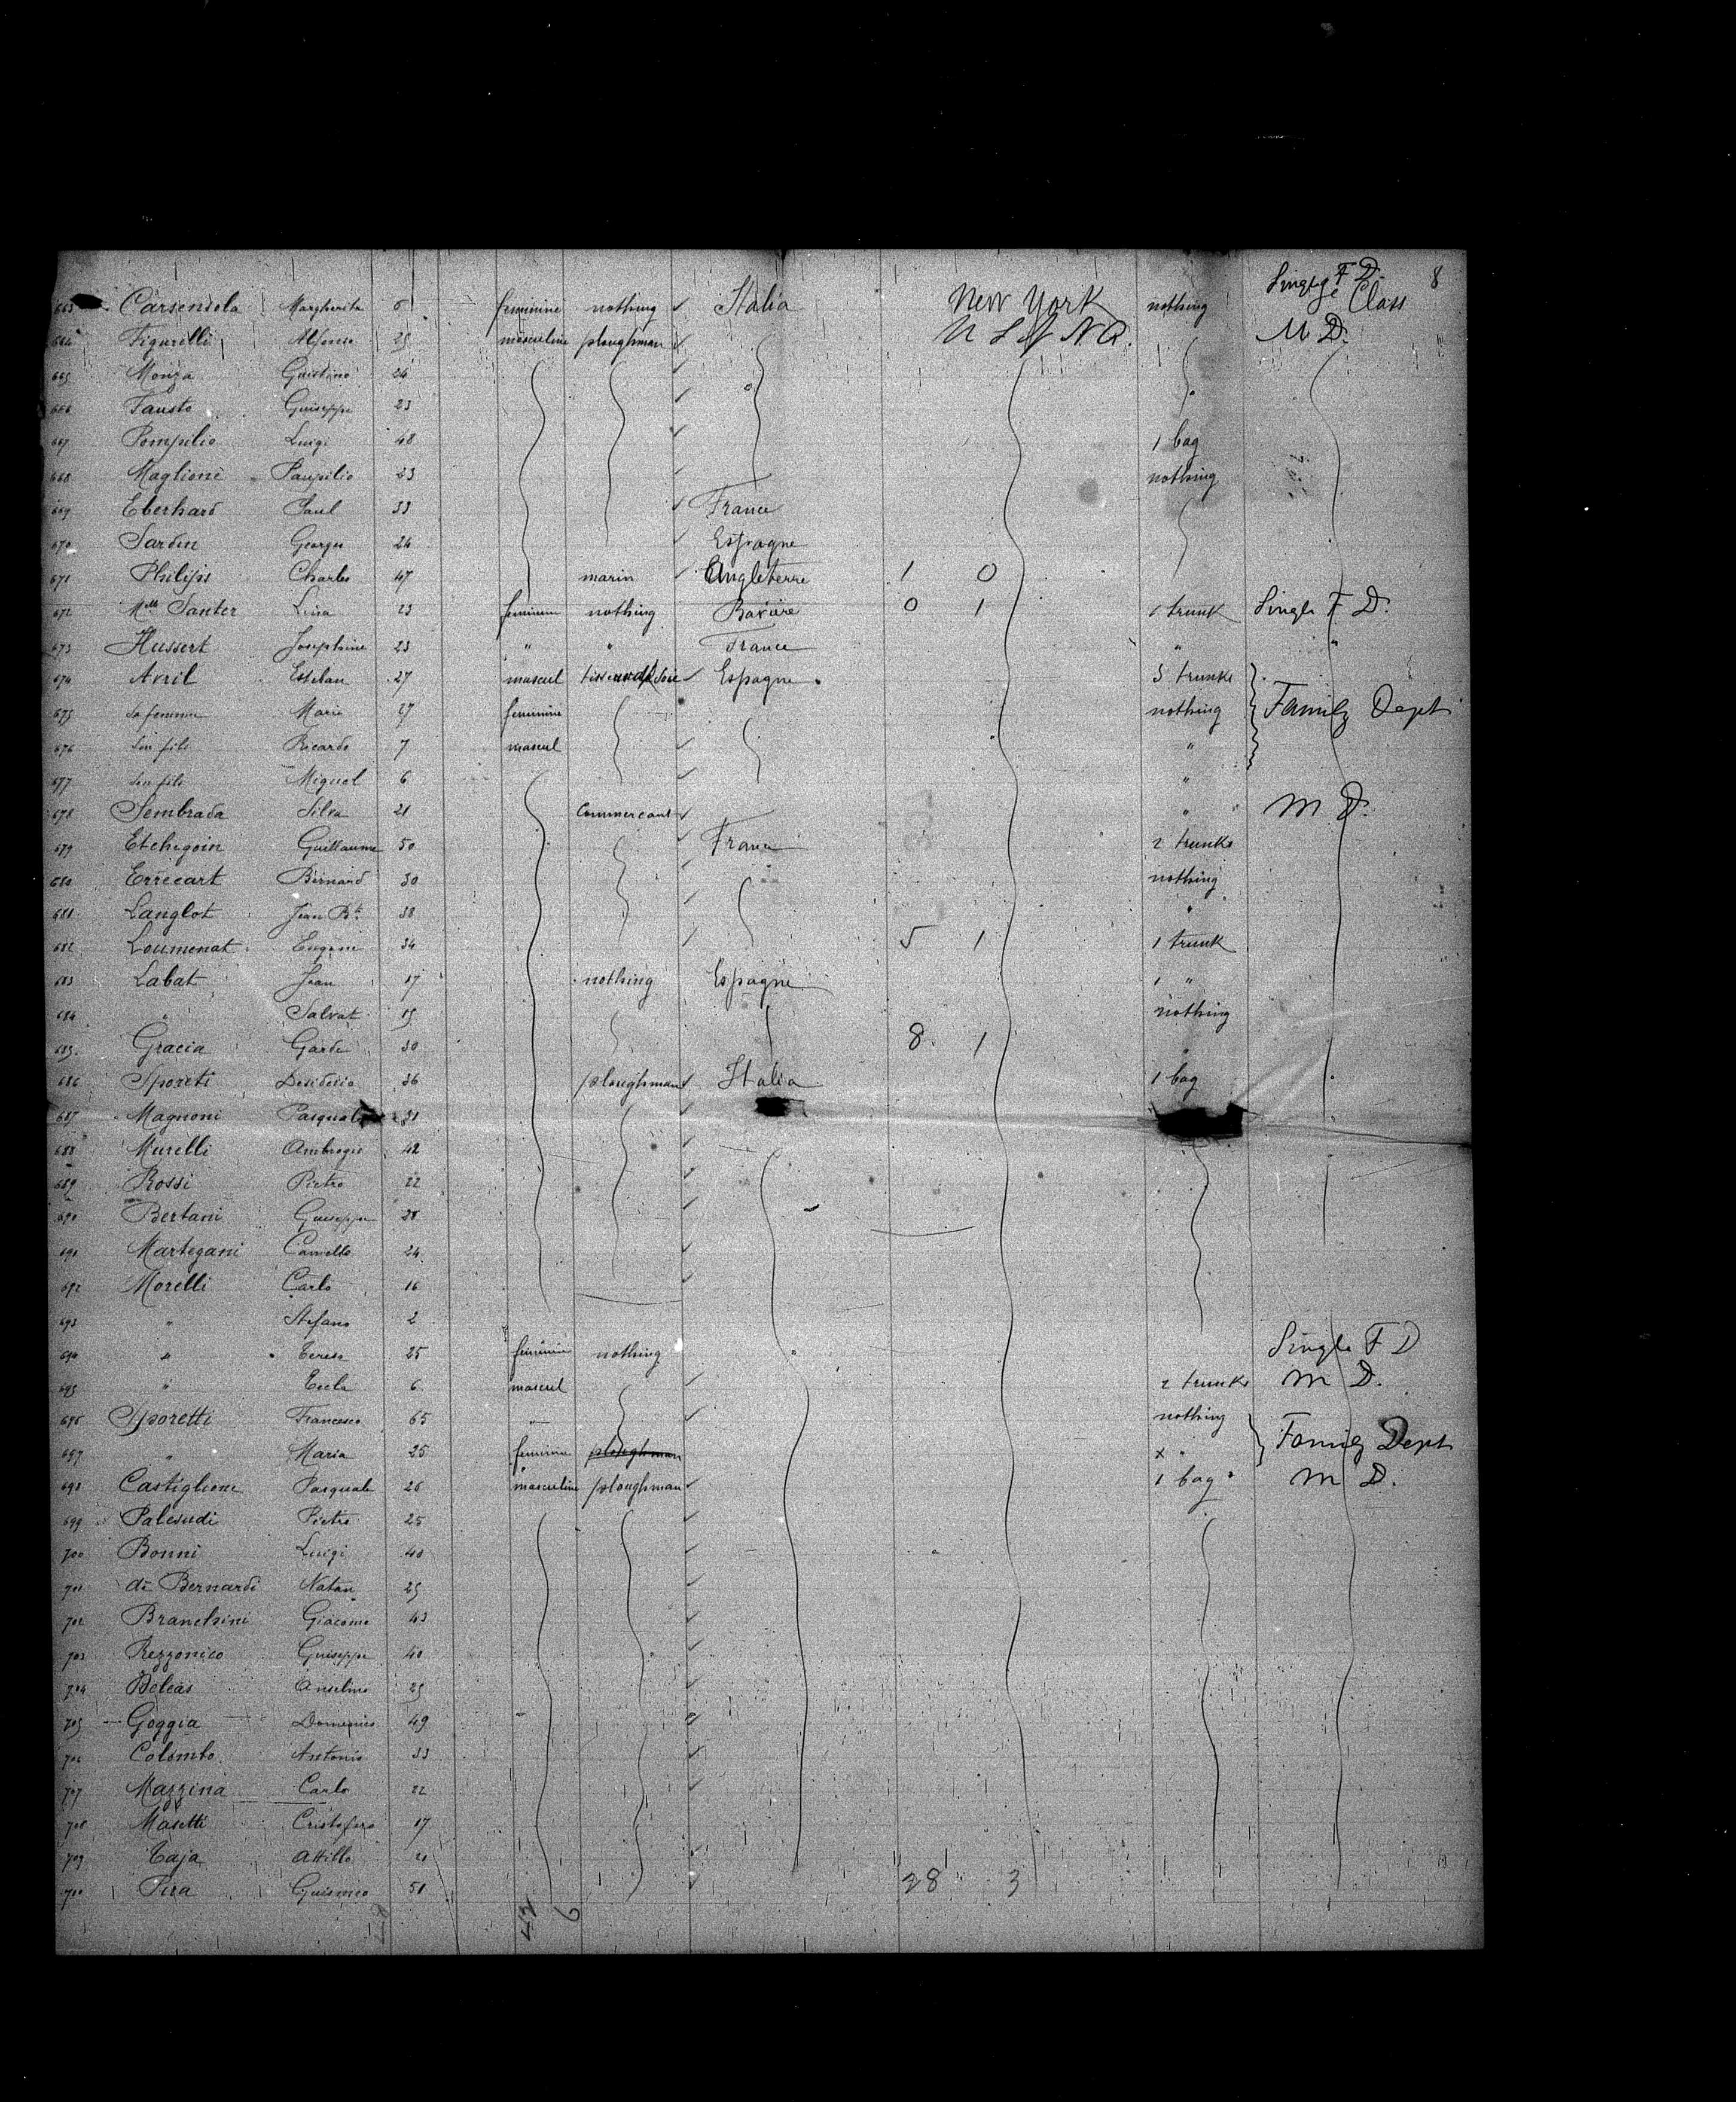 Single F D. 8
663 Carsendola Margherita 6 feminine nothing Italia New York nothing Class
664 Figurelli Alfonso 25 masculine ploughman U S of N A. M D.
665 Monza Guistino 24
666 Fausto Guiseppe 23 "
667 Pompilio Luigi 48 1 bag
668 Maglione Paupilio 23 nothing
669 Eberhard Paul 33 France
670 Sardin Georges 24 Espagne
671 Philips Charles 47 marin Angleterre 1 0
672 Mlle Santer Lina 23 feminine nothing Bavière 0 1 1 trunk Single F D.
673 Hussert Josephine 23 " " France " "
674 Avril Esteban 27 mascul Espagne 3 trunks
675 sa femme Marie 27 feminine nothing Family Dept
676 son fils Ricardo 7 mascul "
677 son fils Miguel 6 "
678 Sembrada Silva 21 Commercant " M D.
679 Etchegoin Guillaume 50 France 2 trunks
680 Errecart Bernard 30 nothing
681 Langlot Jean Bte 38 "
682 Loumenat Eugene 34 5 1 1 trunk
683 Labat Jean 17 nothing Espagne 1 "
684 " Salvat 15 nothing
685 Gracia Garde 30 8 1 "
686 Sporeti Desiderio 36 ploughman Italia 1 bag
687 Magnoni Pasquale 31
688 Murelli Ambrogio 42
689 Rossi Pietro 22
690 Bertani Guiseppe 28
691 Martegani Camello 24
692 Morelli Carlo 16
693 " Stefano 2
694 " Teresa 25 feminine nothing Single F D
695 " Tecla 6 mascul 2 trunks M D.
696 Sporetti Francesco 65 " nothing
697 " Maria 25 feminine ploughman x " Family Dept
698 Castiglione Pasquale 26 masculine ploughman 1 bag M D.
699 Palesudi Pietro 25
700 Bonni Luigi 40
701 di Bernardi Natan 25
702 Branchini Giacomo 43
703 Rezzonico Guiseppe 40
704 Boleas Anselmo 25
705 Goggia Domenico 49
706 Colombo Antonio 33
707 Mazzina Carlo 22
708 Masetti Cristoforo 17
709 Taja Attillo 21
710 Pira 51 28 3